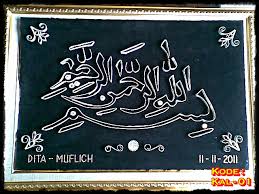 بسم الله الرحمن الرحيم
DITA - MUFLICH
11 - 11 - 2011
KODE:
KAL-01